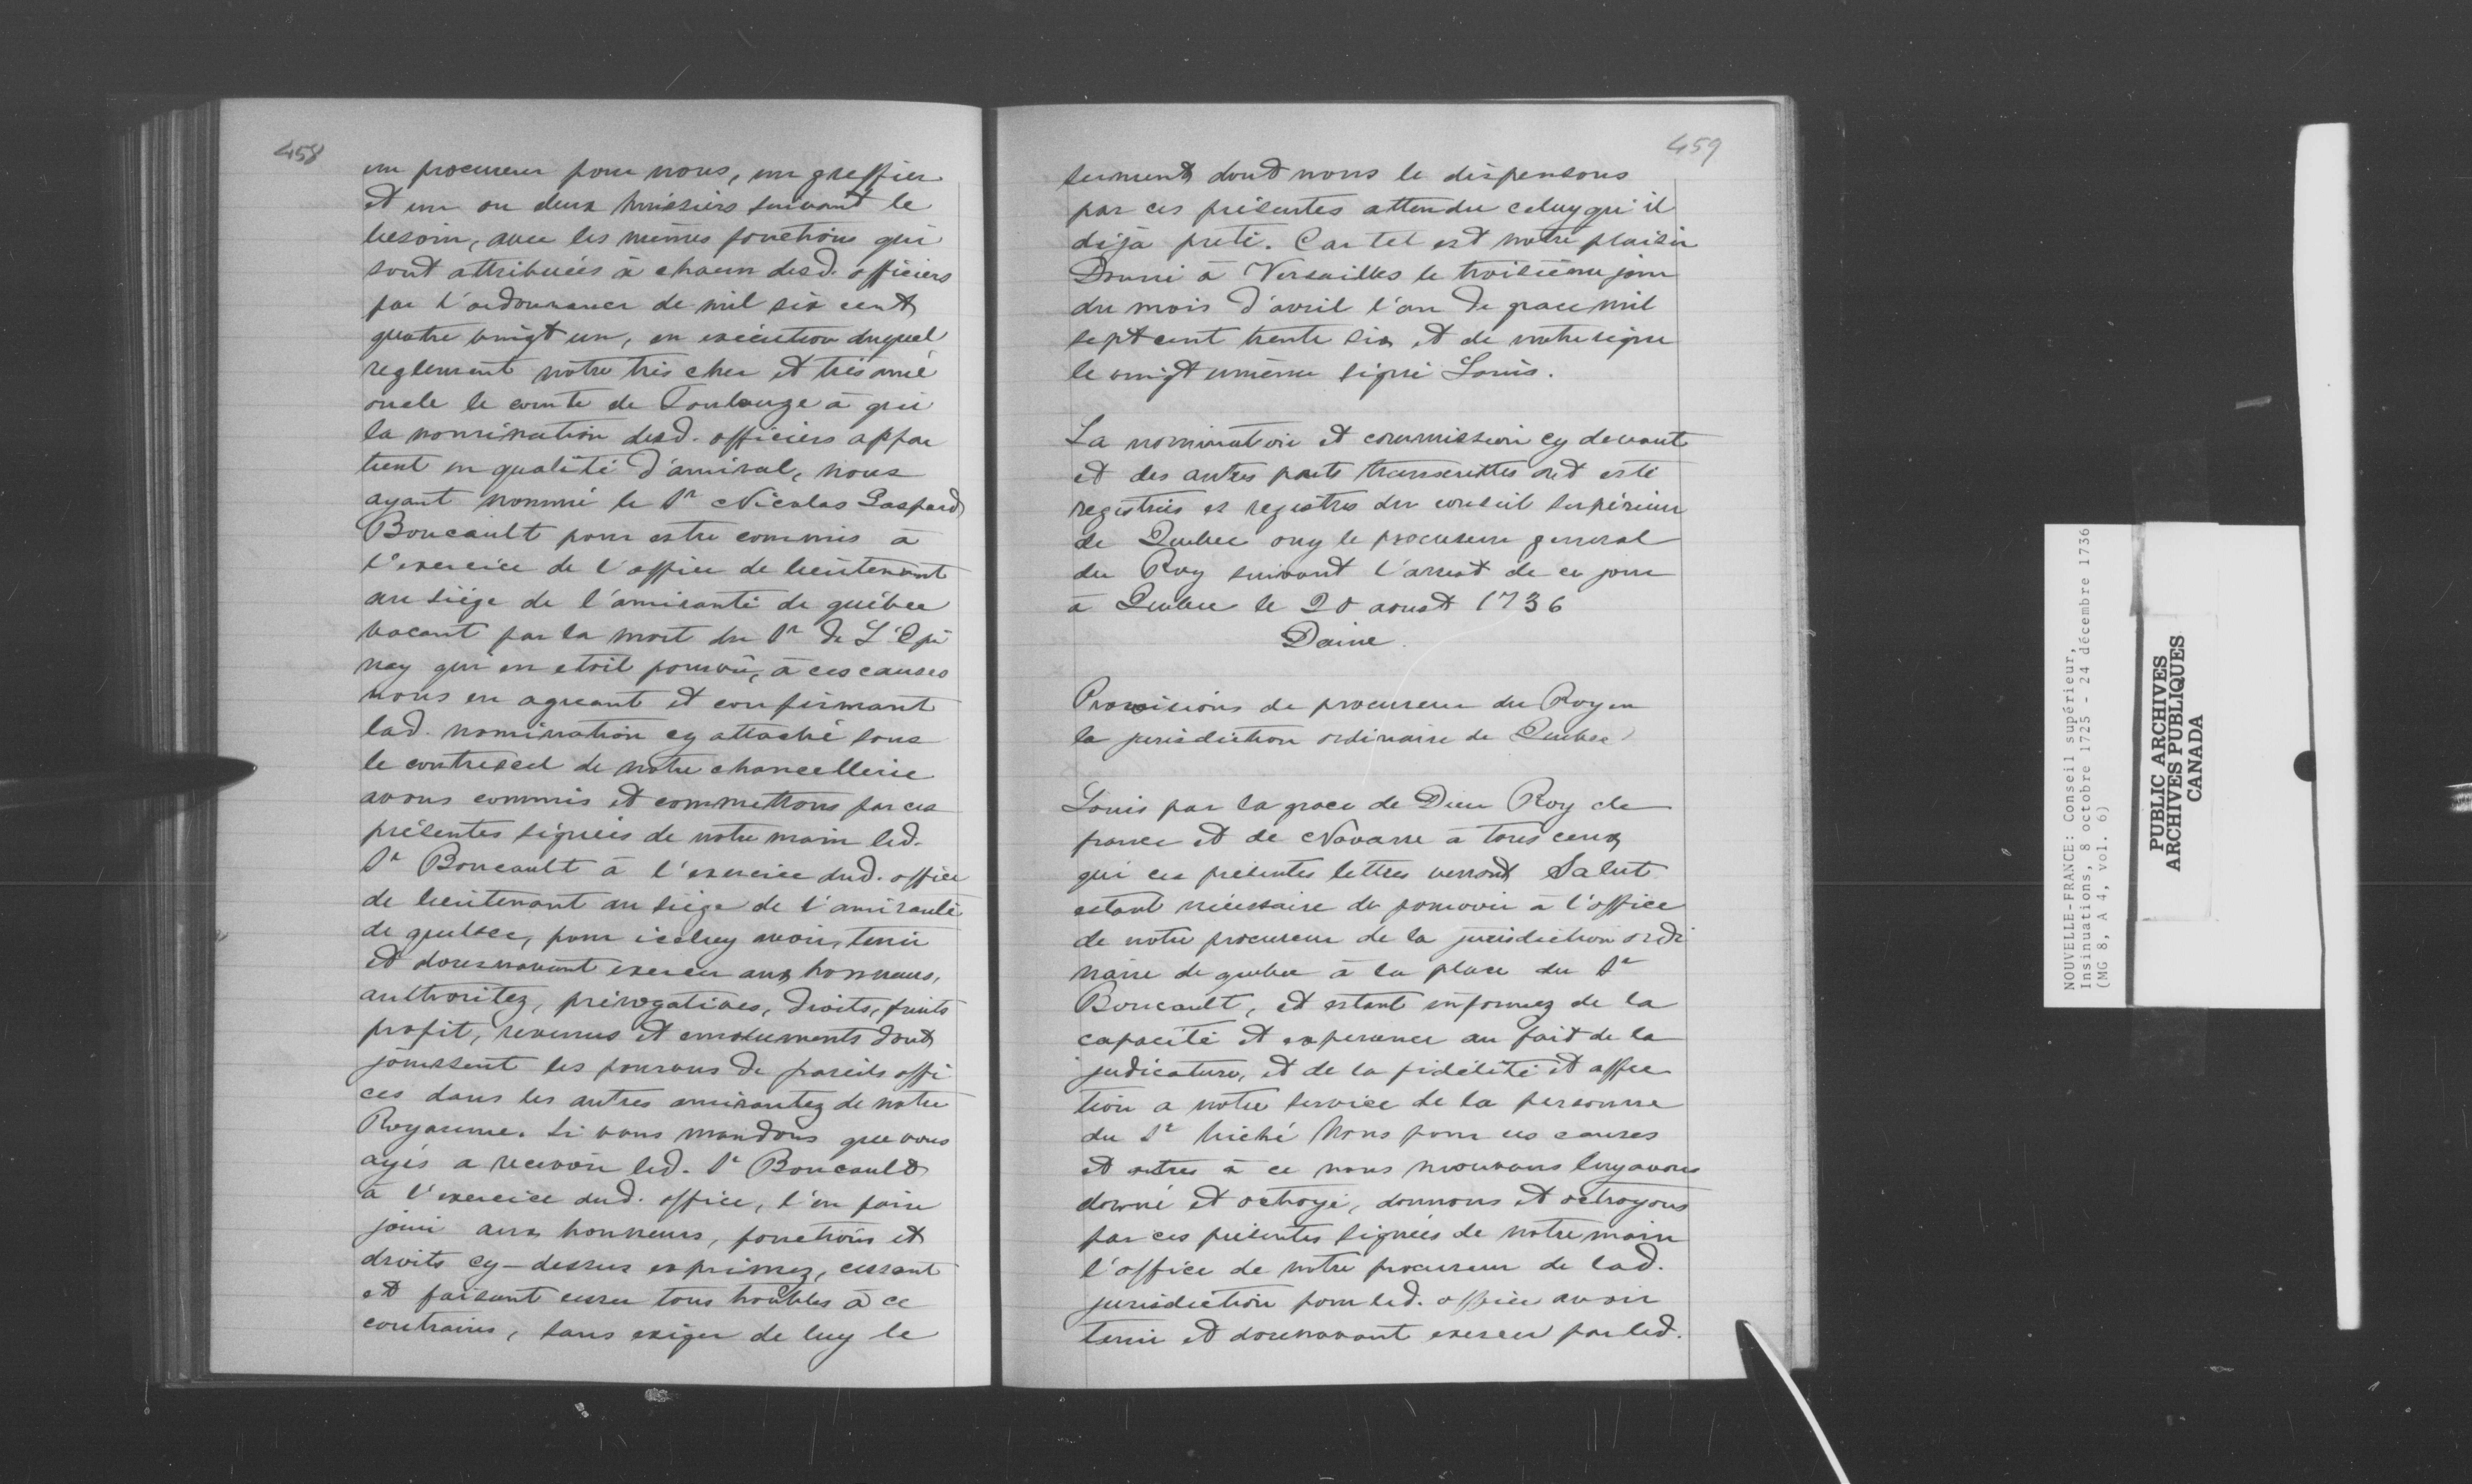 458
un procureur pour nous, un greffier
et un ou deux huissiers suivant le
besoin, avec les mêmes fonctions qui
sont attribuées à chacun desd. officiers
par l'ordonnance de mil six cent
quatre vingt un, en exécution duquel
reglement notre très cher et très amé
oncle le comte de Toulouze à qui
la nomination desd. officiers appar
tient en qualité d'amiral, nous
ayant nommé le Sr Nicolas Gaspard
Boucault pour estre commis à
l'exercice de l'office de lieutenant
au siège de l'amirauté de québec
vacant par la mort du Sr de L'Epi
nay qui en etoit pourvû, à ces causes
nous en agreant et confirmant
lad. nomination cy attaché sous
le contrescel de notre chancellerie
avons commis et commettons par ces
présentes signées de notre main led.
Sr Boucault à l'exercice dud. office
de lieutenant au siège de l'amirauté
de quebec, pour icelluy avoir, tenir
et doresnavant exercer aux honneurs,
authoritez, prérogatives, droits, fruits
profit, revenus et emoluments dont
jouissent les pourvus de pareils offi
ces dans les autres amirautez de notre
Royaume. Si vous mandons que vous
ayés a recevoir led. Sr Boucault
à l'exercice dud. office, l'en faire
jouir aux honneurs, fonctions et
droits cy-dessus exprimez, cessant
et faisant cesser tous troubles à ce
contraires, sans exiger de luy le
459
serment dont nous le dispensons
par ces présentes attendu celuy qu'il
déjà preté. Car tel est notre plaisir
Donné à Versailles le troisième jour
du mois d'avril l'an de grace mil
sept cent trente six et de notre règne
le vingt unième signé Louis.
La nomination et commission cy devant
et des autres parts transcrittes ont esté
registrées es registres du conseil supérieur
de Quebec ouy le procureur general
du Roy suivant l'arrest de ce jour
à Quebec le 20 aoust 1736
Daine.
Provisions de procureur du Roy en
la jurisdiction ordinaire de Quebec
Louis par la grace de Dieu Roy de
france et de Navarre à tous ceux
qui ces présentes lettres verront Salut
estant nécessaire de pourvoir à l'office
de notre procureur de la jurisdiction ordi
naire de quebec à la place du Sr
Boucault, et estant informez de la
capacité et experience au fait de la
judicature, et de la fidélité et affec
tion a notre service de la personne
du Sr hiché Nous pour ces causes
et autres à ce nous mouvans luy avons
donné et octroyé, donnons et octroyons
par ces présentes signées de notre main
l'office de notre procureur de lad.
jurisdiction pour led. office avoir
tenir et dorenavant exercer par led.
NOUVELLE-FRANCE: Conseil supérieur,
Insinuations, 8 octobre 1725 - 24 décembre 1736
(MG 8, A 4, vol. 6)
PUBLIC ARCHIVES
ARCHIVES PUBLIQUES
CANADA